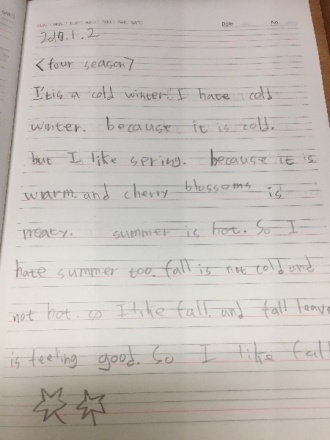 Date No.
2019.1.2
<four season>
It'is a cold winter. I hate cold
winter. because it is cold.
but I like spring. because it is
warm and cherry blossoms is
preaty. summer is hot. So I
hate summer too. fall is not cold and
not hot so I like fall. and fall leave
is feeling good. So I like fall